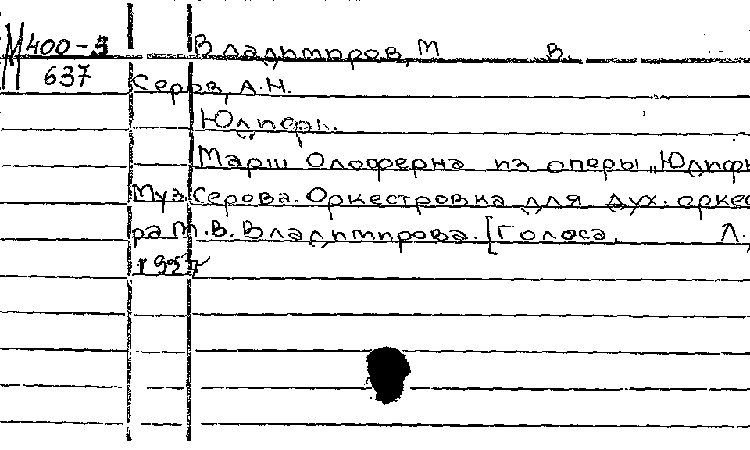 М400-3 Владимиров, М В.
637 Серов, А.Н.
Юдифь.
Марш Олоферна из оперы „Юдифь
Муз. Серова. Оркестровка для дух. оркес
ра М.В. Владимирова. [Голоса. Л.,
1957